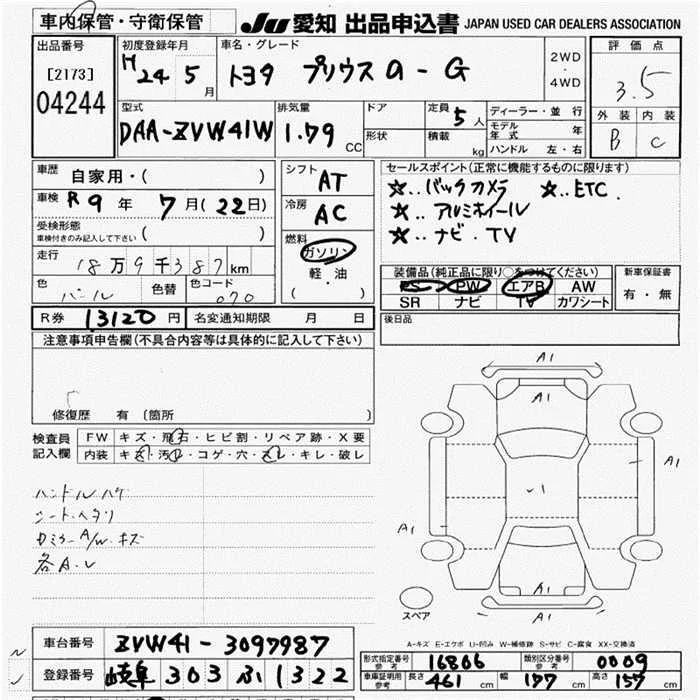 車内保管・守衛保管 JU 愛知 出品申込書 JAPAN USED CAR DEALERS ASSOCIATION
出品番号 初度登録年月 車名・グレード 2WD・4WD 評価点
[2173] H 24 5 月 トヨタ プリウスα-G 3.5
04244 型式 排気量 ドア 定員 5 人 ディーラー・並行 外装 内装
DAA-ZVW41W 1.79 CC 形状 積載 kg モデル年式 年 B C
ハンドル 左・右
車歴 自家用・( ) シフト AT セールスポイント(正常に機能するものに限ります)
車検 R 9 年 7 月(22日) 冷房 AC ☆..バックカメラ ☆..ETC.
☆..アルミホイール
受検形態 車検付きのみ記入して下さい ( ) 燃料 ガソリン ☆..ナビ.TV
走行 18万9千387km 軽・油 装備品(純正品に限り○をつけてください) 新車保証書
色 パール 色替 色コード 070 ( ) PS PW エアB AW 有・無
SR ナビ TV カワシート
R券 13120 円 名変通知期限 月 日 後日品
注意事項申告欄(不具合内容等は具体的に記入して下さい)
修復歴 有 〔箇所 〕
検査員 FW キズ・飛石・ヒビ割・リペア跡・X要
記入欄 内装 キズ・汚れ・コゲ・穴・スレ・キレ・破レ
ハンドルハゲ
シートヘタリ
A/W キズ
各A.U
A1
A1
1
A1
A1
A1
A1
スペア
A-キズ E-エクボ U-凹み W-補修跡 S-サビ C-腐食 XX-交換済
車台番号 ZVW41-3097987
登録番号 岐阜 303 ふ 1322
形式指定番号 参考 16806 類別区分番号 参考 0009
車車証明用 参考 長さ 461 cm 幅 177 cm 高さ 157 cm